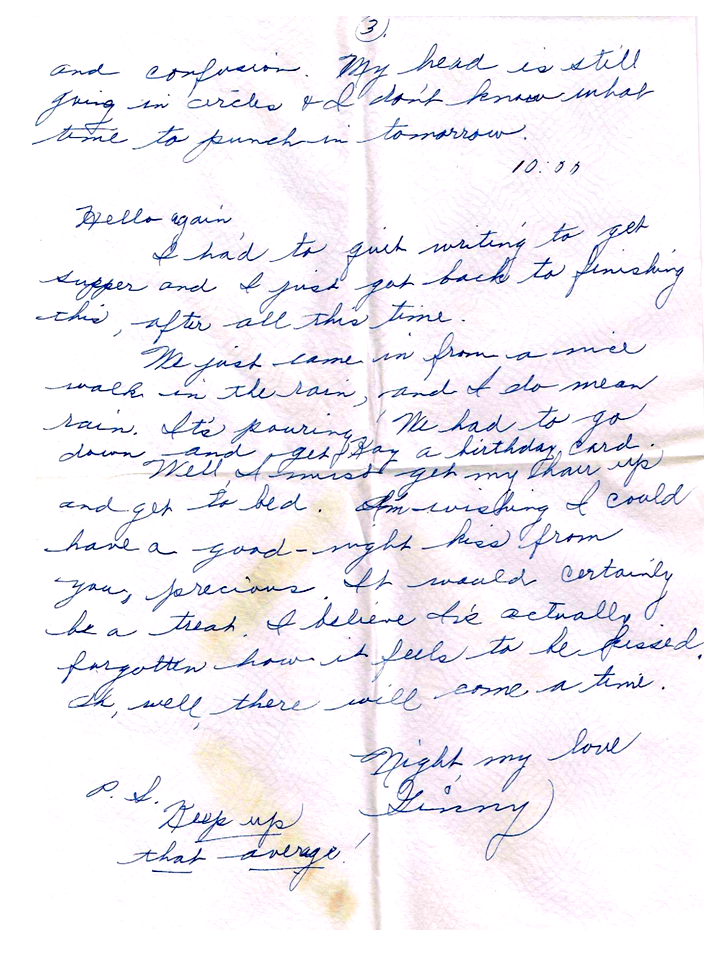 3.
and confusion. My head is still
going in circles & I don't know what
time to punch in tomorrow.
10:00
Hello again
I had to quit writing to get
supper and I just got back to finishing
this, after all this time.
We just came in from a nice
walk in the rain, and I do mean
rain. It's pouring! We had to go
down and get Kay a birthday card.
Well I must get my hair up
and get to bed. Am wishing I could
have a good-night kiss from
you, precious. It would certainly
be a treat. I believe I've actually
forgotten how it feels to be kissed.
Oh, well, there will come a time.
Night, my love
Ginny
P.S.
Keep up
that average!